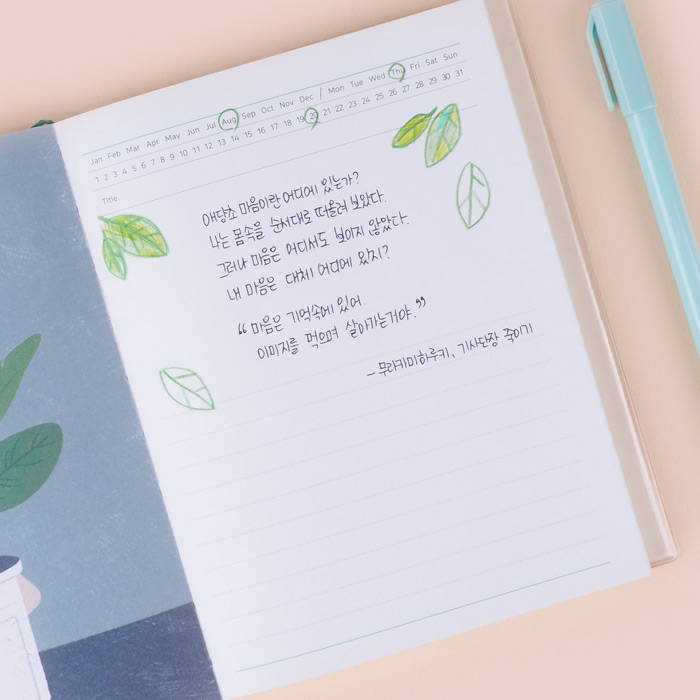 Jan Feb Mar Apr May Jun Jul Aug Sep Oct Nov Dec / Mon Tue Wed Thu Fri Sat Sun
1 2 3 4 5 6 7 8 9 10 11 12 13 14 15 16 17 18 19 20 21 22 23 24 25 26 27 28 29 30 31
Title.
애당초 마음이란 어디에 있는가?
나는 몸속을 순서대로 떠올려 보았다.
그러나 마음은 어디서도 보이지 않았다.
내 마음은 대체 어디에 있지?
“마음은 기억속에 있어.
이미지를 먹으며 살아가는거야.”
- 무라카미하루키, 기사단장 죽이기